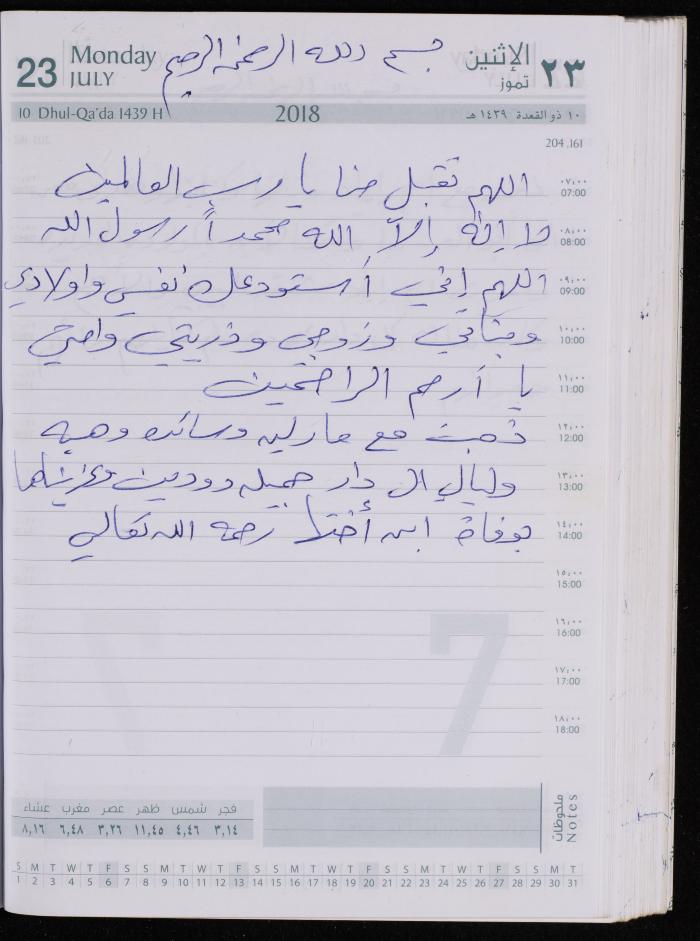 23 Monday JULY
بسم الله الرحمن الرحيم
الإثنين تموز ٢٣
10 Dhul-Qa'da 1439 H 2018 ١٠ ذو القعدة ١٤٣٩ هـ
204 .161
اللهم تقبل منا يا رب العالمين ٠٧:٠٠ 07:00
لا إله إلاّ الله محمداً رسول الله ٠٨:٠٠ 08:00
اللهم إني أستودعك نفسي واولادي ٠٩:٠٠ 09:00
وبناتي وزوجي وذريتي ١٠:٠٠ 10:00
يا أرحم الراحمين ١١:٠٠ 11:00
ذهبت مع مارليه وسائده وهبه ١٢:٠٠ 12:00
وليالي ال دار جميله ودوين ١٣:٠٠ 13:00
بوفاة ابن أختها رحمه الله تعالي ١٤:٠٠ 14:00
١٥:٠٠ 15:00
١٦:٠٠ 16:00
١٧:٠٠ 17:00
١٨:٠٠ 18:00
7
فجر شمس ظهر عصر مغرب عشاء
٣,١٤ ٤,٤٦ ١١,٤٥ ٣,٢٦ ٦,٤٨ ٨,١٦
ملحوظات
Notes
S M T W T F S S M T W T F S S M T W T F S S M T W T F S S M T
1 2 3 4 5 6 7 8 9 10 11 12 13 14 15 16 17 18 19 20 21 22 23 24 25 26 27 28 29 30 31